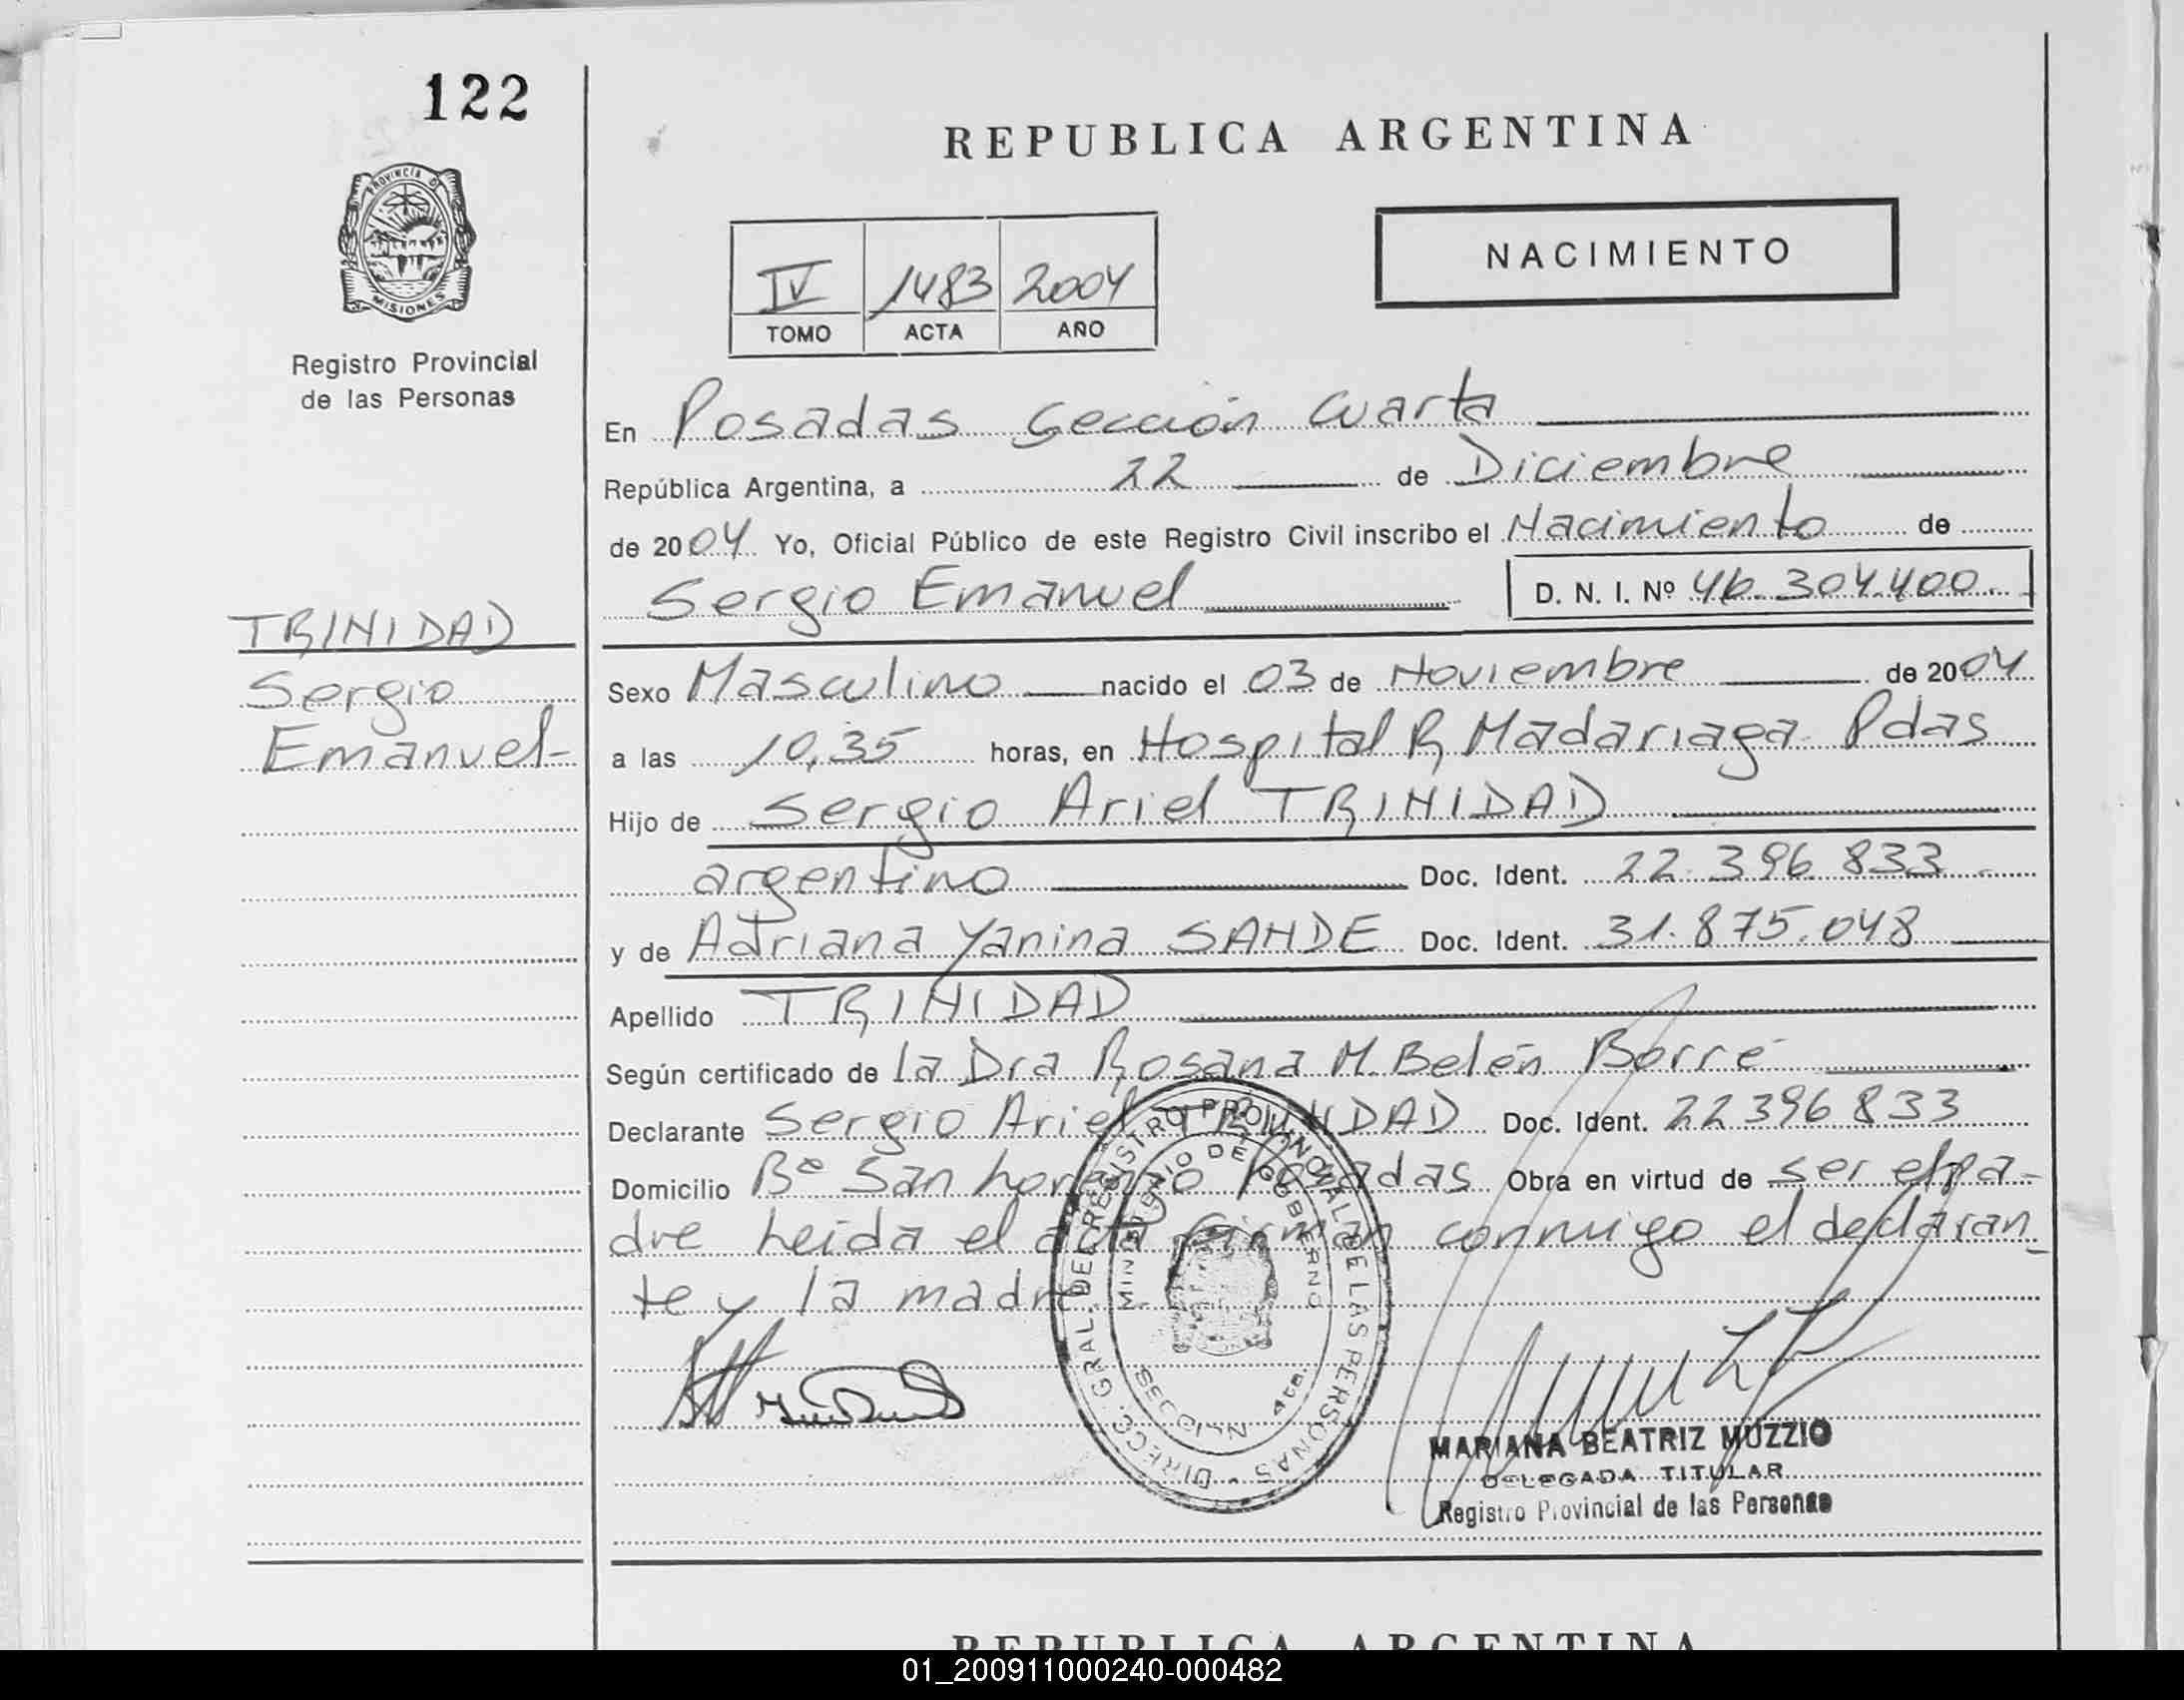 122
PROVINCIA D
MISIONES
Registro Provincial
de las Personas
REPUBLICA ARGENTINA
NACIMIENTO
IV 1483 2004
TOMO ACTA AÑO
En Posadas Sección Cuarta
República Argentina, a 22 de Diciembre
de 2004 Yo, Oficial Público de este Registro Civil inscribo el Nacimiento de
Sergio Emanuel D. N. I. Nº 46.304.400
TRINIDAD
Sergio
Emanuel-
Sexo Masculino nacido el 03 de Noviembre de 2004
a las 10,35 horas, en Hospital R Madariaga Pdas
Hijo de Sergio Ariel TRINIDAD
argentino Doc. Ident. 22.396.833
y de Adriana Yanina SANDE Doc. Ident. 31.875.048
Apellido TRINIDAD
Según certificado de la Dra Rosana M. Belén Borré
Declarante Sergio Ariel TRINIDAD Doc. Ident. 22396833
Domicilio Bº San Lorenzo Posadas Obra en virtud de ser el pa-
dre Leida el acta firman conmigo el declaran_
te y la madre
DIRECC. GRAL. DEL REGISTRO PROVINCIAL DE LAS PERSONAS
MINISTERIO DE GOBIERNO
SECCION 4ta.
MARIANA BEATRIZ MUZZIO
DELEGADA TITULAR
Registro Provincial de las Personas
REPUBLICA ARGENTINA
01_200911000240-000482